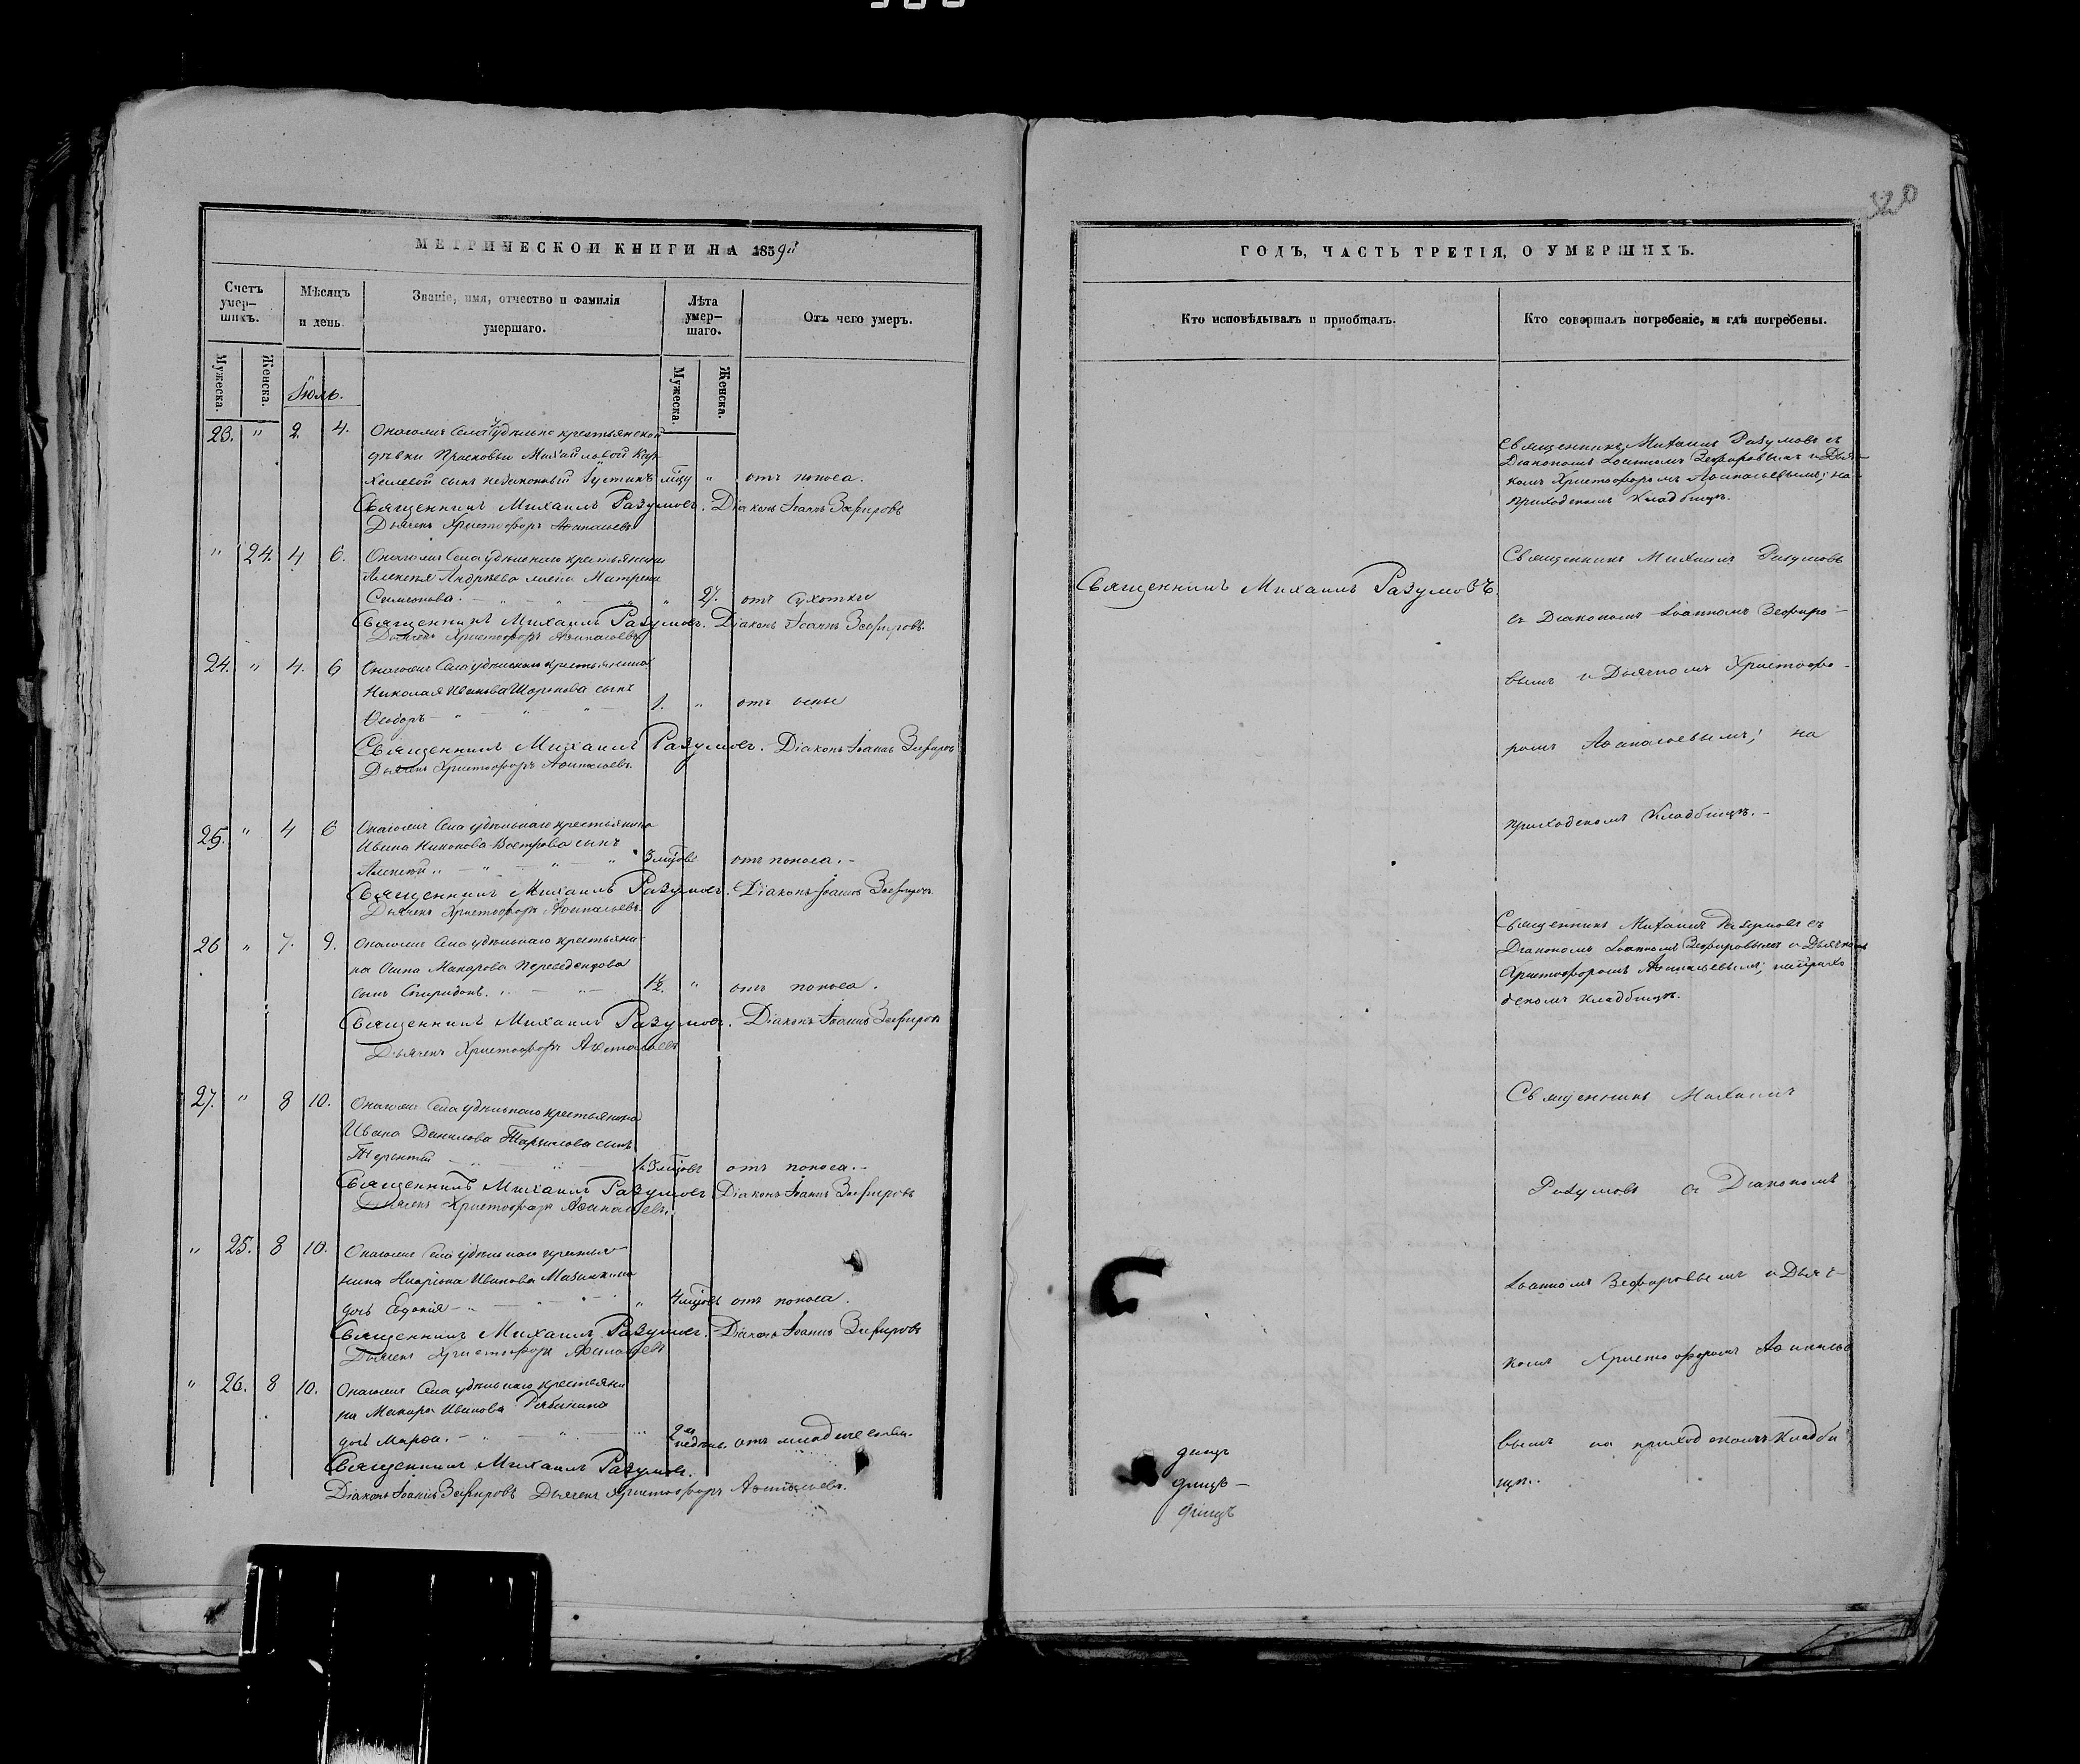 МЕТРИЧЕСКОЙ КНИГИ НА 1859й
Счетъ умер-
шихъ.
Мѣсяцъ
и день
Званіе, имя, отчество и фамилія
умершаго.
Лѣта
умер-
шаго.
Отъ чего умеръ.
Мужеска.
Женска.
Мужеска.
Женска.
Іюль.
23. " 2. 4. Онагожъ Села удѣльно крестьянской
дѣвки Просковьи Михайловой
сынъ незаконный Іустинъ мцу " отъ поноса.
Священникъ Михаилъ Разумовъ. Діаконъ Іоаннъ Зефировъ
Дьячекъ Христофоръ Аѳанасьевъ
" 24. 4 6. Онагожъ Села удѣльнаго крестьянина
Алексѣя Андрѣева жена Матрена
Симеонова. " 27. отъ сухотки
Священникъ Михаилъ Разумовъ. Діаконъ Іоаннъ Зефировъ
Дьячекъ Христофоръ Аѳанасьевъ
24. " 4. 6 Онагожъ Села удѣльнаго крестьянина
Николая Иванова сынъ
Ѳеодоръ 1. " отъ оспы
Священникъ Михаилъ Разумовъ. Діаконъ Іоаннъ Зефировъ
Дьячекъ Христофоръ Аѳанасьевъ.
25. " 4 6 Онагожъ Села удѣльнаго крестьянина
Ивана Никонова Вострова сынъ
Алексѣй 3 мцовъ отъ поноса.
Священникъ Михаилъ Разумовъ. Діаконъ Іоаннъ Зефировъ
Дьячекъ Христофоръ Аѳанасьевъ.
26 " 7. 9. Онагожъ Села удѣльнаго крестьяни-
на Осипа Макарова Переведенцова
сынъ Спиридонъ. 1½. " отъ поноса.
Священникъ Михаилъ Разумовъ. Діаконъ Іоаннъ Зефировъ
Дьячекъ Христофоръ Аѳанасьевъ
27. " 8 10. Онагожъ Села удѣльнаго крестьянина
Ивана Данилова сынъ
Терентій мцовъ отъ поноса.
Священникъ Михаилъ Разумовъ. Діаконъ Іоаннъ Зефировъ
Дьячекъ Христофоръ Аѳанасьевъ.
" 25. 8 10. Онагожъ Села удѣльнаго крестья-
нина Иларіона Иванова
дочь Евдокія " 4 мцовъ отъ поноса.
Священникъ Михаилъ Разумовъ. Діаконъ Іоаннъ Зефировъ
Дьячекъ Христофоръ Аѳанасьевъ
" 26. 8 10. Онагожъ Села удѣльнаго крестьяни
на Макара Иванова Рябинина
дочь Марѳа. 2хъ недѣль. отъ младенческой.
Священникъ Михаилъ Разумовъ.
Діаконъ Іоаннъ Зефировъ Дьячекъ Христофоръ Аѳанасьевъ.
ГОДЪ, ЧАСТЬ ТРЕТІЯ, О УМЕРШИХЪ.
Кто исповѣдывалъ и пріобщалъ.
Кто совершалъ погребеніе, и гдѣ погребены.
Священникъ Михаилъ Разумовъ съ
Діакономъ Іоанномъ Зефировымъ и Дьяч-
комъ Христофоромъ Аѳанасьевымъ; на
приходскомъ Кладбищѣ.
Священникъ Михаилъ Разумовъ.
Священникъ Михаилъ Разумовъ
съ Діакономъ Іоанномъ Зефиро-
вымъ и Дьячкомъ Христофо-
ромъ Аѳанасьевымъ; на
приходскомъ Кладбищѣ.
Священникъ Михаилъ Разумовъ съ
Діакономъ Іоанномъ Зефировымъ и Дьячкомъ
Христофоромъ Аѳанасьевымъ; на прихо
дскомъ кладбищѣ.
Священникъ Михаилъ
Разумовъ съ Діакономъ
Іоанномъ Зефировымъ и Дьяч-
комъ Христофоромъ Аѳанасье
вымъ на приходскомъ Кладби
щѣ.